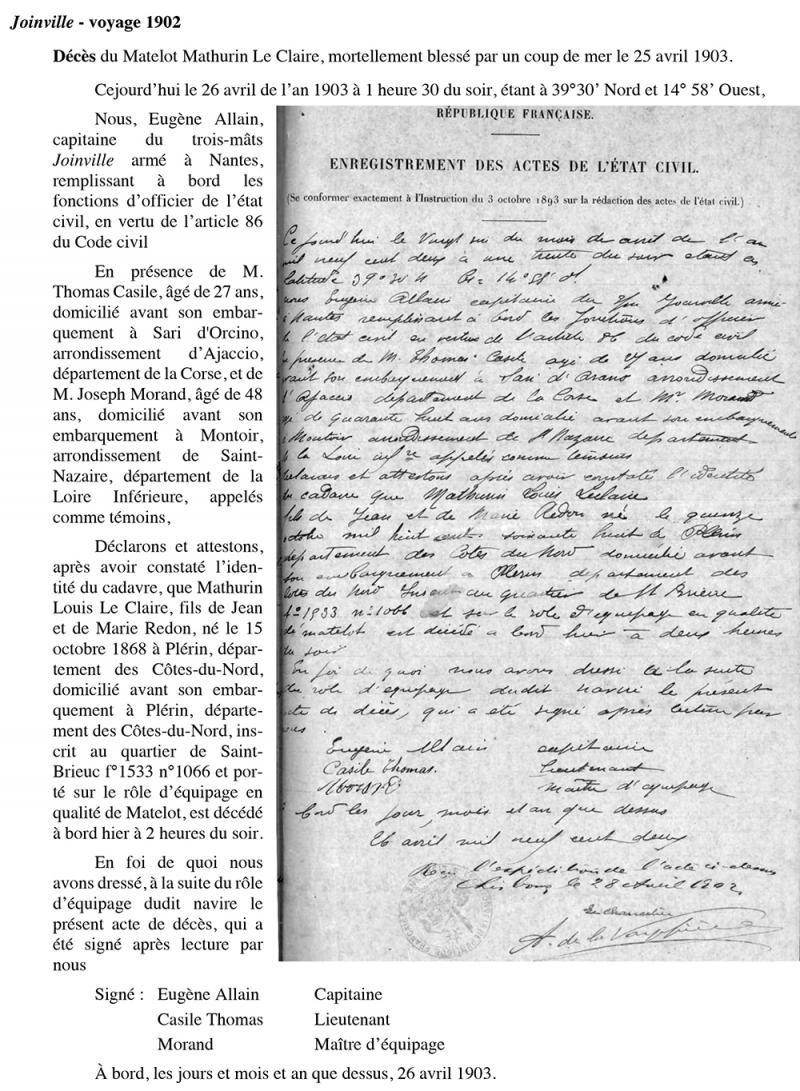 Joinville - voyage 1902
Décès du Matelot Mathurin Le Claire, mortellement blessé par un coup de mer le 25 avril 1903.
Cejourd’hui le 26 avril de l’an 1903 à 1 heure 30 du soir, étant à 39°30’ Nord et 14° 58’ Ouest,
Nous, Eugène Allain,
capitaine du trois-mâts
Joinville armé à Nantes,
remplissant à bord les
fonctions d’officier de l’état
civil, en vertu de l’article 86
du Code civil
En présence de M.
Thomas Casile, âgé de 27 ans,
domicilié avant son embar-
quement à Sari d'Orcino,
arrondissement d’Ajaccio,
département de la Corse, et de
M. Joseph Morand, âgé de 48
ans, domicilié avant son
embarquement à Montoir,
arrondissement de Saint-
Nazaire, département de la
Loire Inférieure, appelés
comme témoins,
Déclarons et attestons,
après avoir constaté l’iden-
tité du cadavre, que Mathurin
Louis Le Claire, fils de Jean
et de Marie Redon, né le 15
octobre 1868 à Plérin, dépar-
tement des Côtes-du-Nord,
domicilié avant son embar-
quement à Plérin, départe-
ment des Côtes-du-Nord, ins-
crit au quartier de Saint-
Brieuc f°1533 n°1066 et por-
té sur le rôle d’équipage en
qualité de Matelot, est décédé
à bord hier à 2 heures du soir.
En foi de quoi nous
avons dressé, à la suite du rôle
d’équipage dudit navire le
présent acte de décès, qui a
été signé après lecture par
nous
RÉPUBLIQUE FRANÇAISE.
ENREGISTREMENT DES ACTES DE L’ÉTAT CIVIL.
(Se conformer exactement à l’Instruction du 3 octobre 1893 sur la rédaction des actes de l’état civil.)
Ce jourd'hui le vingt six du mois de avril de l'an
mil neuf cent deux à une trente du soir étant en
latitude 39°30 N 14°58' O.
nous Eugène Allain capitaine du Joinville armé
Nantes remplissant à bord les fonctions d'officier
l'état civil en vertu de l'article 86 du code civil
presence de M. Thomas Casile agé de 27 ans domicilié
avant son embarquement à Sari d'Orcino arrondissement
d'Ajaccio departement de la Corse et Mr Morand
de quarante huit ans domicilié avant son embarquement
Montoir arrondissement de St Nazaire departement
la Loire infre appelés comme temoins
et attestons après avoir constaté l'identité
cadavre que Mathurin Louis Leclaire
fils de Jean et de Marie Redon né le quinze
mil huit cent soixante huit à Plérin
departement des Cotes du Nord domicilié avant
son embarquement à Plerin departement des
Cotes du Nord Inscrit au quartier de St Brieuc
n°1066 et sur le role d'equipage en qualité
de matelot est décédé à bord hier à deux heures
du soir
En foi de quoi nous avons dressé à la suite
du role d'equipage dudit navire le présent
acte de décès, qui a été signé après lecture par
nous
Eugène Allain capitaine
Casile Thomas. Lieutenant
Maitre d'equipage
bord les jour, mois et an que dessus
26 avril mil neuf cent deux
l'expédition de l'acte ci-dessus
le 28 avril 1902
Signé : Eugène Allain Capitaine
Casile Thomas Lieutenant
Morand Maître d’équipage
À bord, les jours et mois et an que dessus, 26 avril 1903.